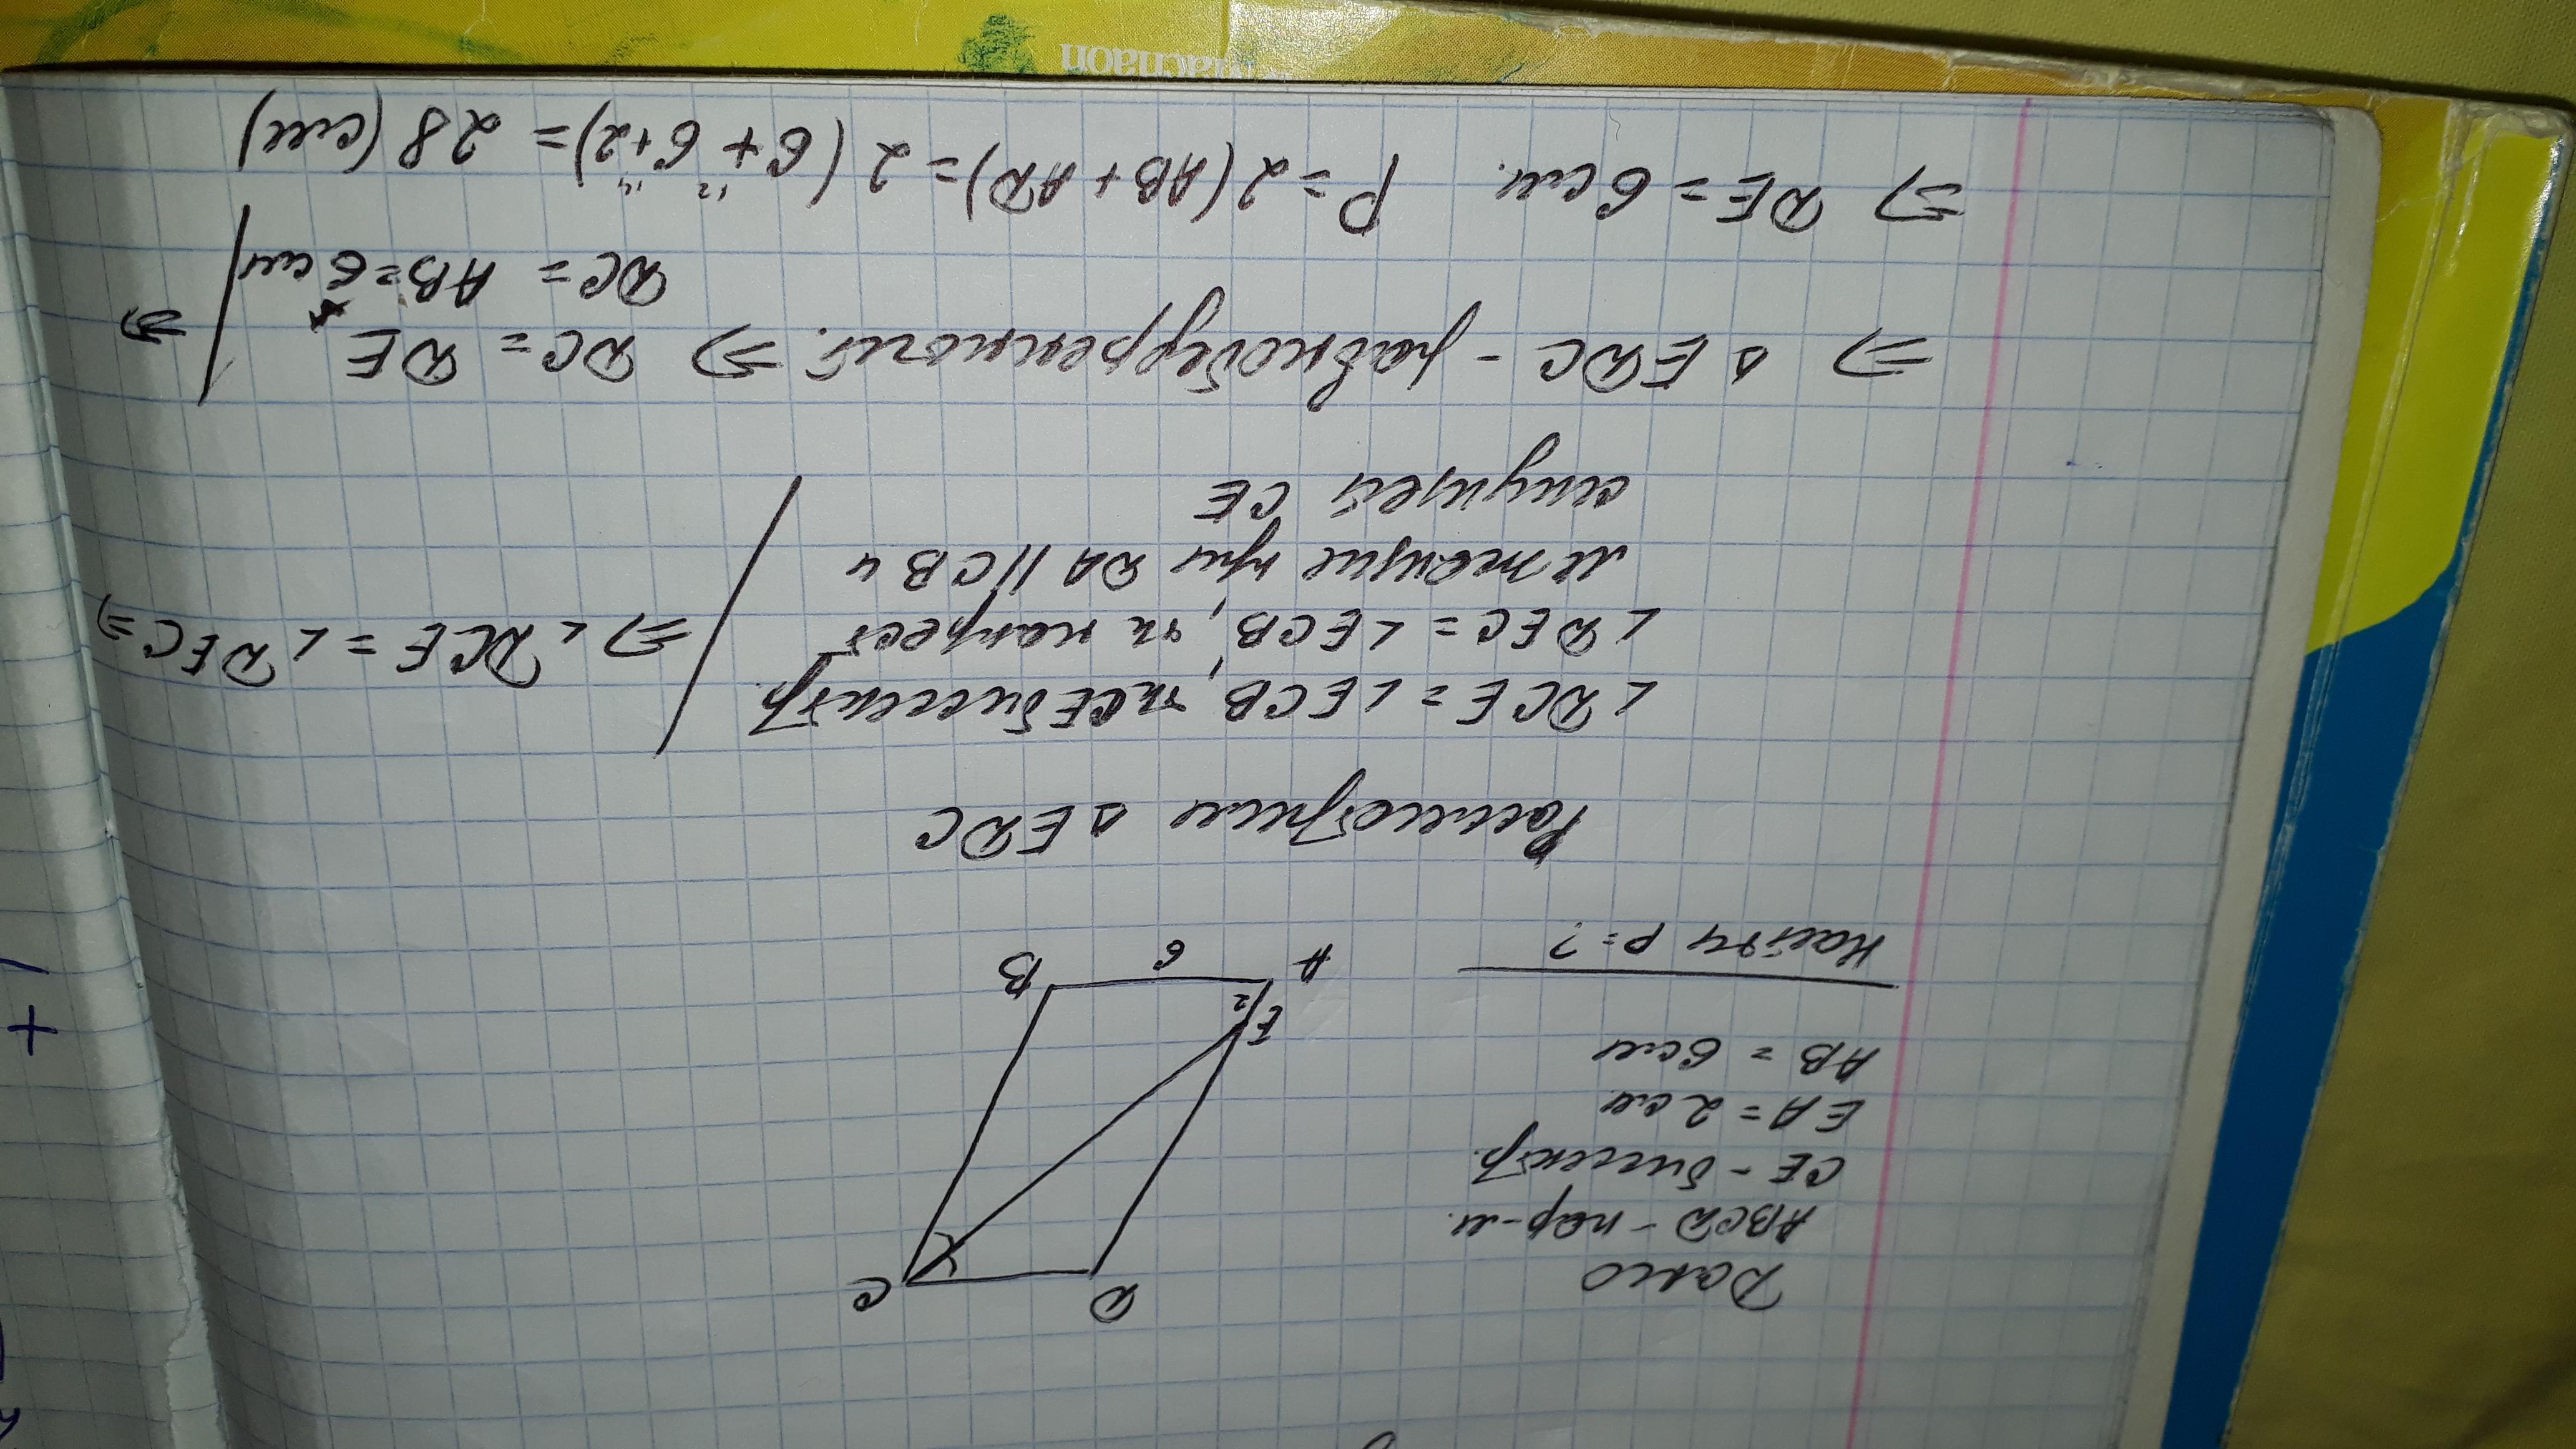 Дано
ABCD - пар-м.
CE - биссектр.
EA = 2 см
AB = 6 см
Найти P = ?
C
D
E
2
A
6
B
Рассмотрим △ EDC
∠ DCE = ∠ ECB, тк CE биссектр.
∠ DEC = ∠ ECB, тк накрест
лежащие при DA || CB и
секущей CE
=> ∠ DCE = ∠ DEC =>
=> △ EDC - равнобедренный. => DC = DE
DC = AB = 6 см
=>
=> DE = 6 см. P = 2 (AB + AD) = 2 (6 + 6 + 2) = 28 (см)
12 14
machaon
+